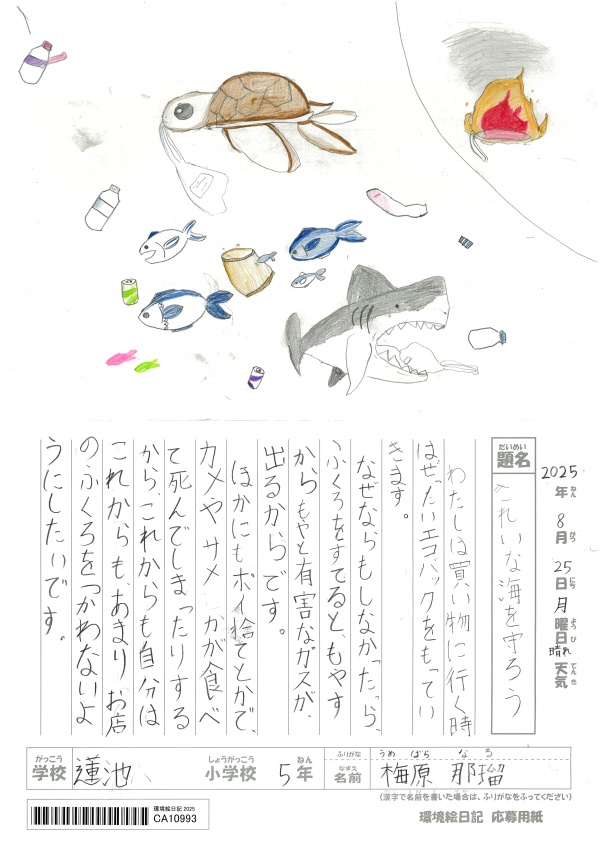 だいめい
題名
きれいな海を守ろう
2025年ねん8月がつ25日にち月曜日ようび晴れ天気てんき
わたしは買い物に行く時
はぜったいエコバックをもってい
きます。
なぜならもしなかったら、
ふくろをすてるともやす
からもやと有害なガスが、
出るからです。
ほかにもポイ捨てとかで、
カメやサメ　かが食べ
て死んでしまったりする
から、これからも自分は
これからも、あまりお店
のふくろをつかわないよ
うにしたいです。
がっこう
学校
蓮池
しょうがっこう
小学校
5年ねん
ふりがな
うめばら なる
なまえ
名前
梅原 那瑠
(漢字で名前を書いた場合は、ふりがなをふってください)
環境絵日記 2025
CA10993
環境絵日記 応募用紙